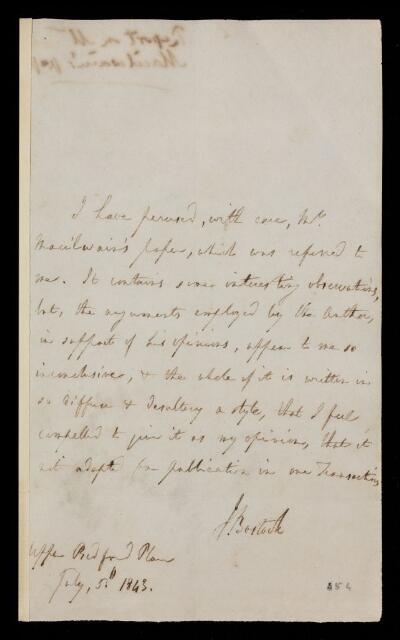 I have perused, with care, Mr.
Macilwain's paper, which was referred to
me. It contains some interesting observations,
but, the arguments employed by the author,
in support of his opinions, appear to me so
inconclusive, & the whole of it is written in
so diffuse & desultory a style, that I feel
compelled to give it as my opinion, that it
not adapted for publication in our Transactions
J Bostock
Upper Bedford Place
July, 5th 1843.